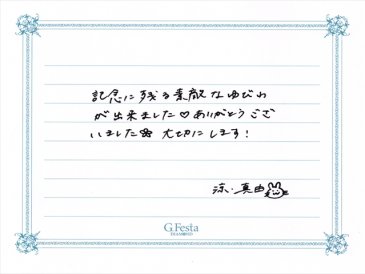 記念に残る素敵なゆびわ
が出来ました♡ありがとうござ
いました✿大切にします!
涼・真由
G.Festa